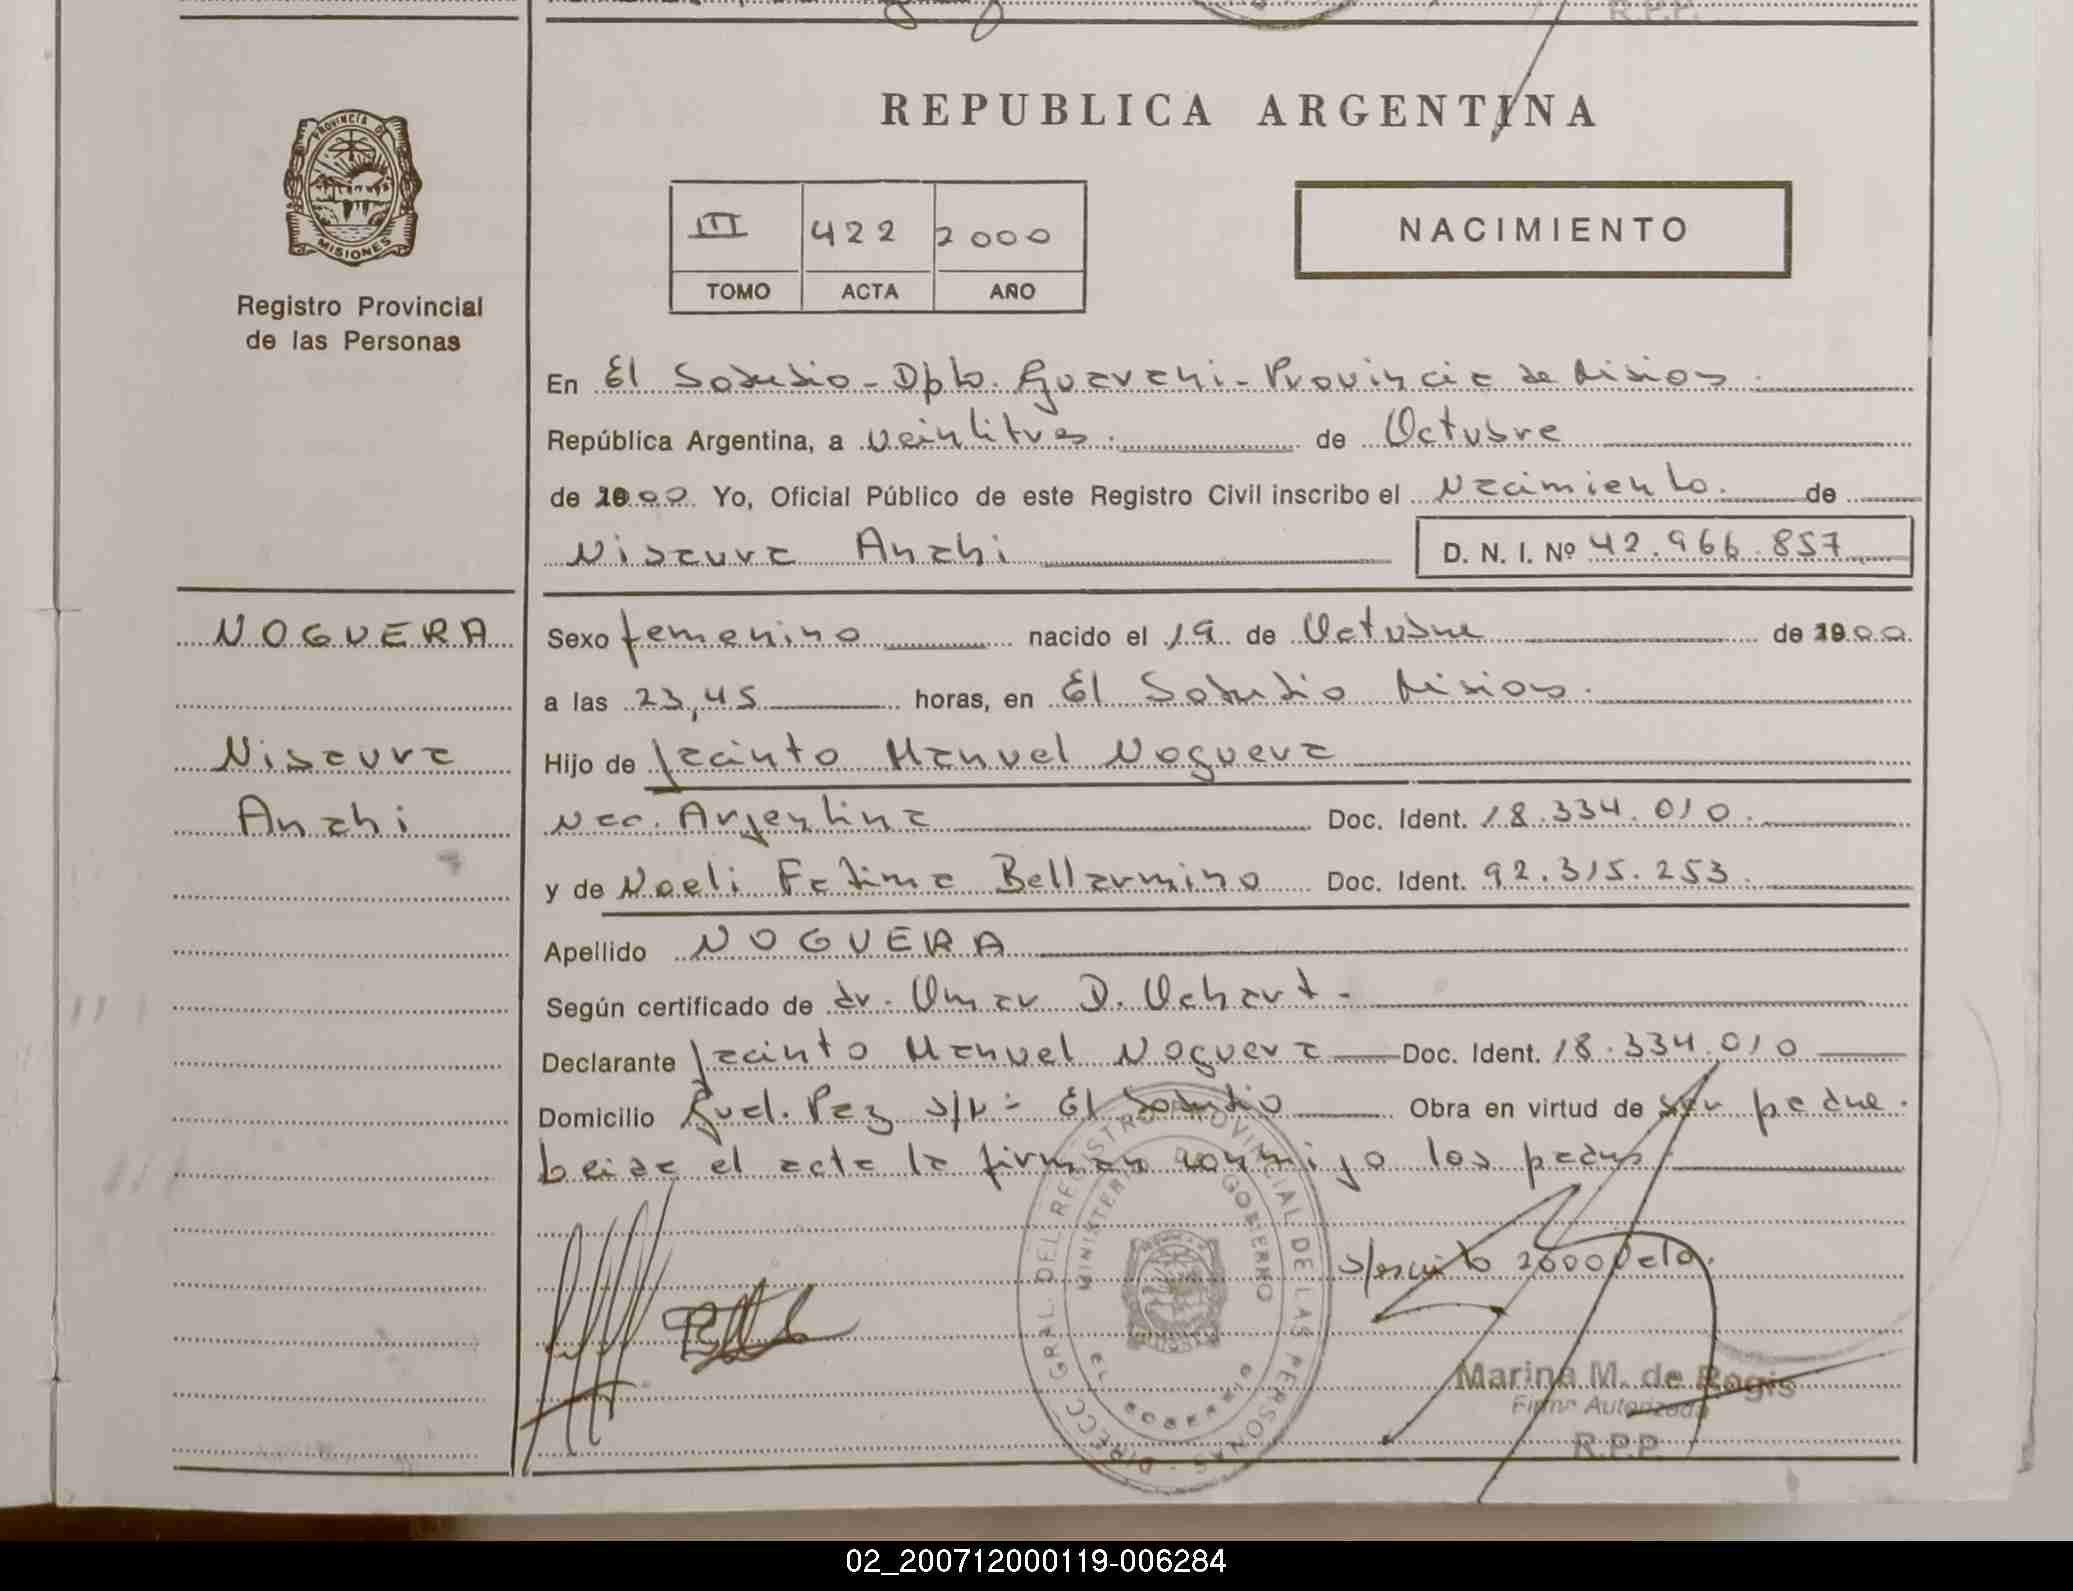 R.P.P.
PROVINCIA DE
MISIONES
Registro Provincial
de las Personas
REPUBLICA ARGENTINA
III 422 2000
TOMO ACTA AÑO
NACIMIENTO
En El Soberbio - Dpto. Guarani - Provincia de Misiones.
República Argentina, a veintitres. de Octubre
de 2000 Yo, Oficial Público de este Registro Civil inscribo el Nacimiento. de
Nisaura Anahi D. N. I. Nº 42.966.857
NOGUERA
Nisaura
Anahi
Sexo femenino nacido el 19 de Octubre de 2000.
a las 23,45 horas, en El Soberbio Misiones.
Hijo de Jacinto Manuel Noguera
Nac. Argentina Doc. Ident. 18.334.010.
y de Noeli Fatima Bellarmino Doc. Ident. 92.315.253.
Apellido NOGUERA
Según certificado de dr. Omar D. Ochart.-
Declarante Jacinto Manuel Noguera Doc. Ident. 18.334.010
Domicilio Guel. Paz s/n- El Soberbio Obra en virtud de ser padre.
Leida el acta la firman conmigo los padres.
s/escrito 2000 Vale.
DIRECC. GRAL. DEL REGISTRO PROVINCIAL DE LAS PERSONAS -
MINISTERIO DE GOBIERNO
EL SOBERBIO
Marina M. de Rogis
Firma Autorizada
R.P.P.
02_200712000119-006284